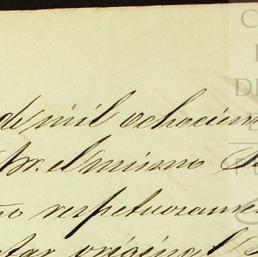 de mil ochocien
Sr. el mismo
no respetuosamen
tar original